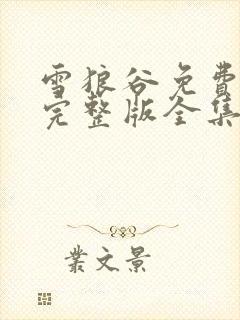 雪狼谷免費
完整版全集
業文景